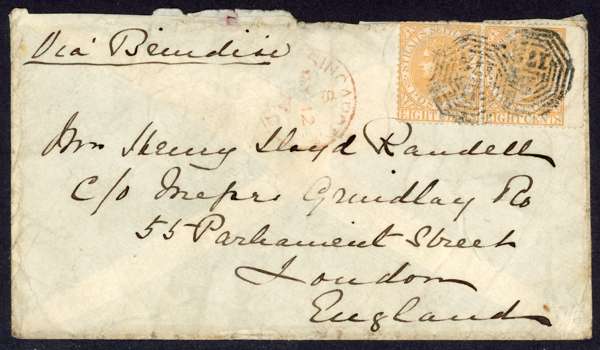 Via Brindisi
SINGAPORE
STRAITS SETTLEMENTS
EIGHT CENTS EIGHT CENTS
Mrs Henry Lloyd Randell
C/o Messrs Grindlay & Co
55 Parliament Street
London
England